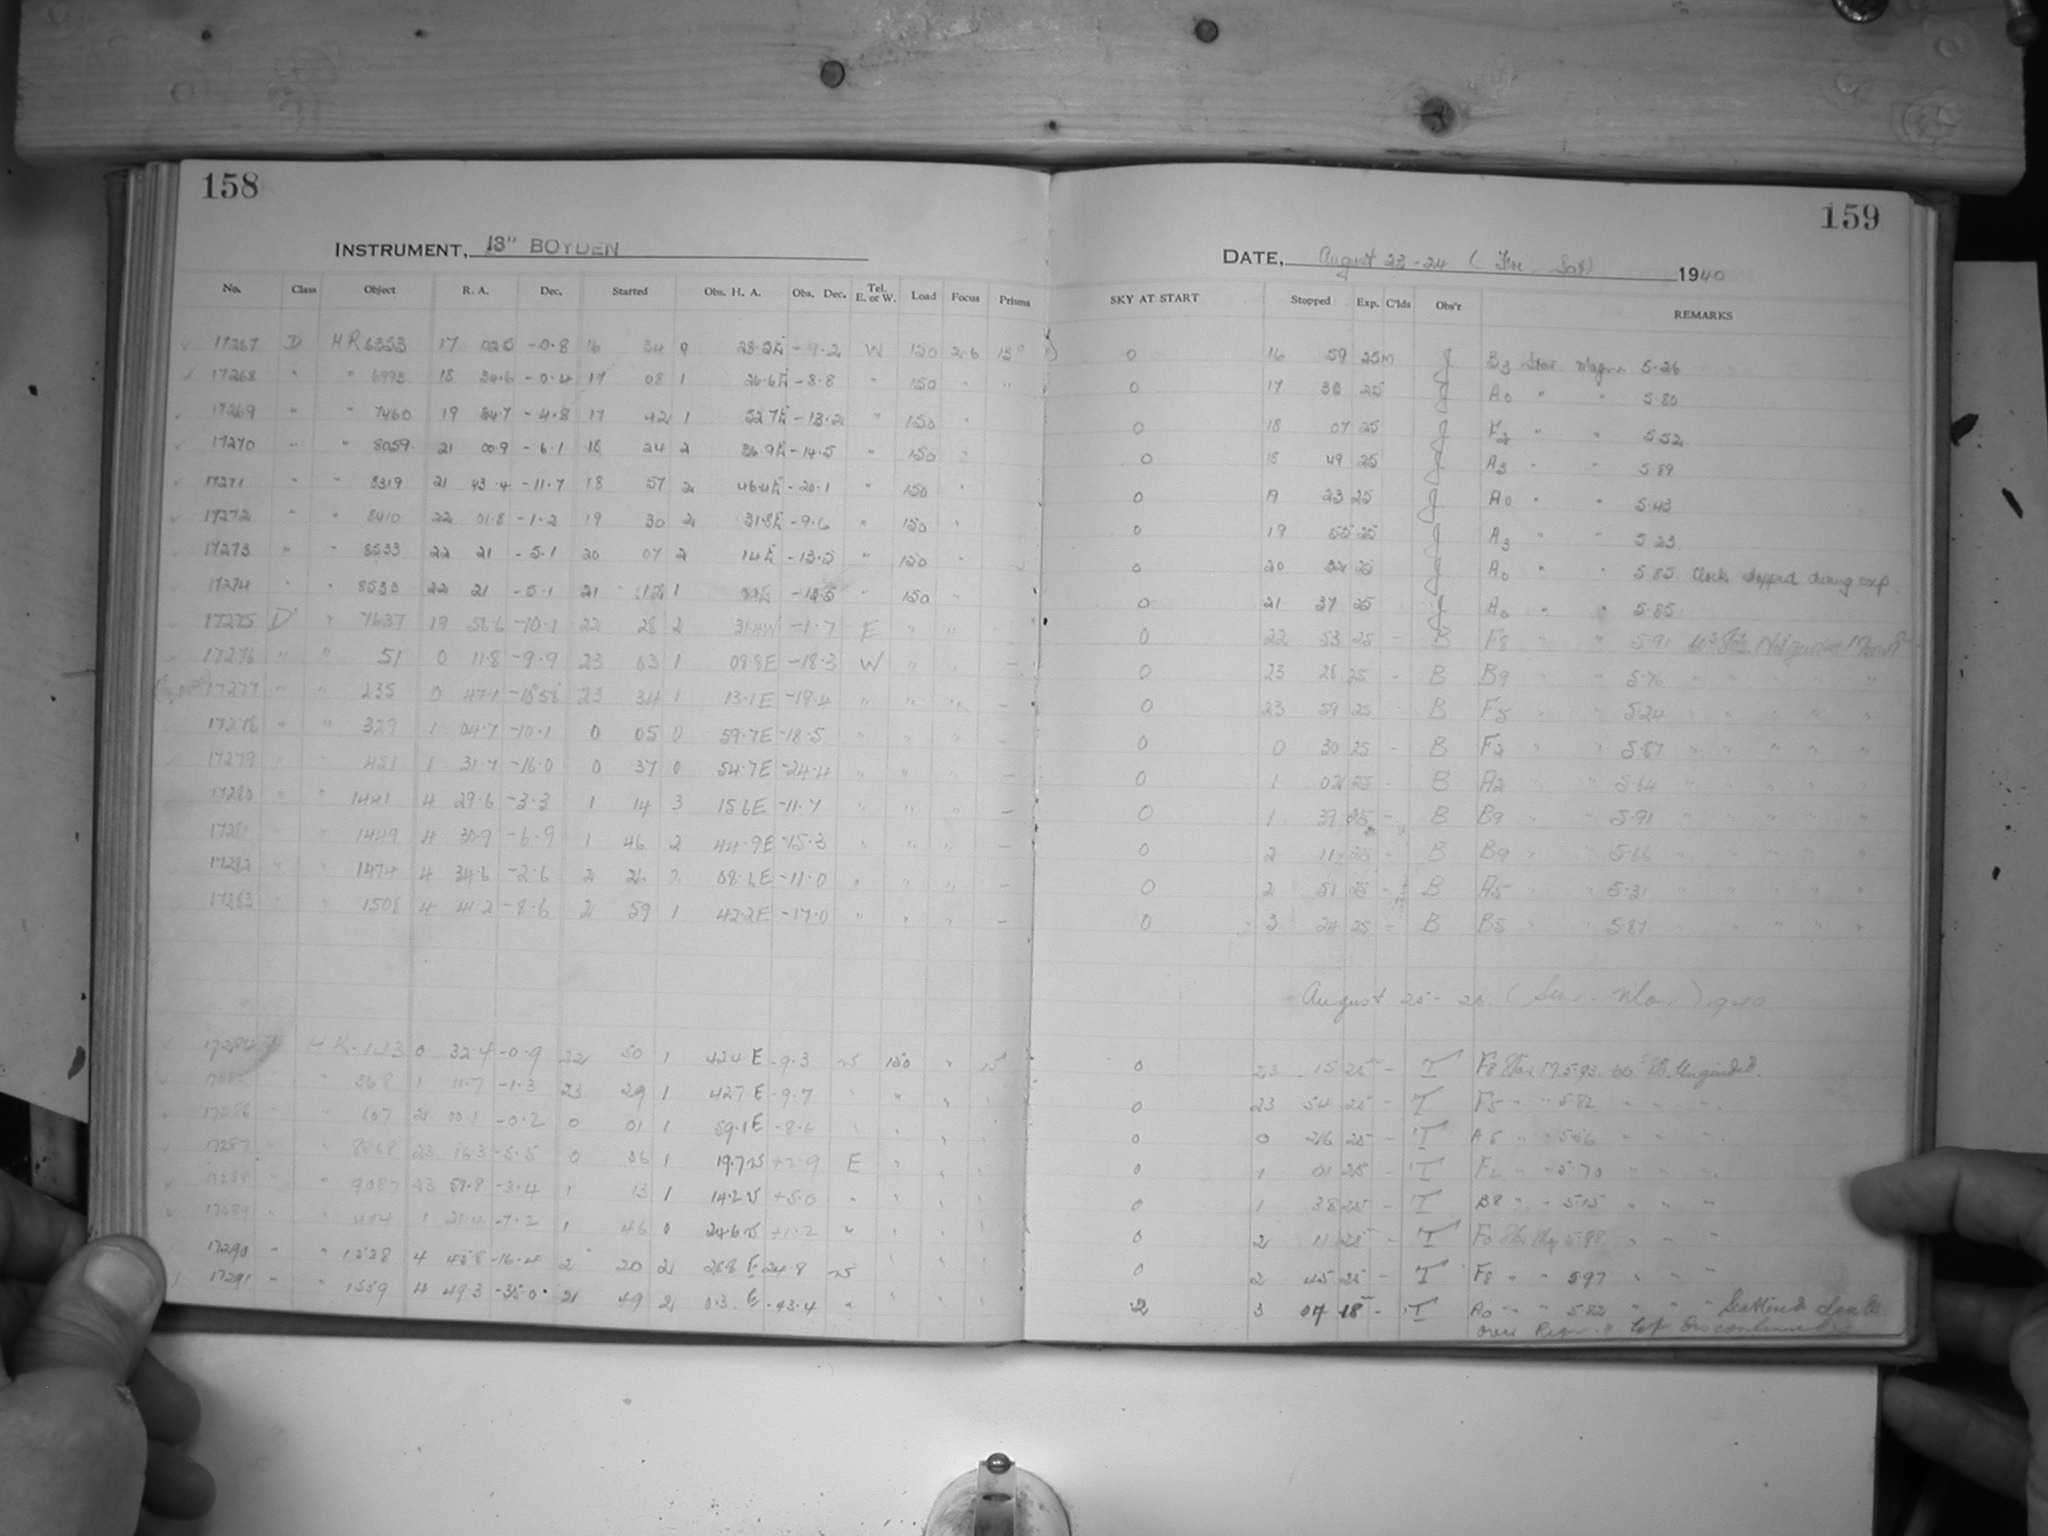 158
INSTRUMENT, 13" BOYDEN
No. Class Object R. A. Dec. Started Obs. H. A. Obs. Dec. Tel. E. or W. Load Focus Prisms
17267 D HR 6353 17 02.5 -0.8 16 34 0 28.5E -9.2 W 150 2.6 15°
17268 " " 6993 18 34.6 -0.4 17 08 1 26.6E -8.8 " 150 " "
17269 " " 7460 19 34.7 -4.8 17 42 1 52.7E -13.2 " 150 "
17270 " " 8059 21 00.9 -6.1 18 24 2 36.9E -14.5 " 150 "
17271 " " 8319 21 43.4 -11.7 18 57 2 46.4E -20.1 " 150 "
17272 " " 8410 22 01.8 -1.2 19 30 2 31.8E -9.6 " 150 "
17273 " " 8533 22 21 -5.1 20 07 2 14E -13.5 " 150 "
17274 " " 8533 22 21 -5.1 21 12 1 -13.5 " 150 "
17275 D' " 7637 19 56.6 -10.1 22 28 2 31.4W -1.7 E " "
17276 " " 51 0 11.8 -9.9 23 03 1 08.8E -18.3 W " " –
17277 " " 235 0 47.1 23 34 1 13.1E -19.4 " " " –
17278 " " 329 1 04.7 -10.1 0 05 0 59.7E -18.5 " " "
17279 " " 451 1 31.7 -16.0 0 37 0 54.7E -24.4 " " " –
17280 " " 1441 4 29.6 -3.3 1 14 3 15.6E -11.7 " " " –
17281 " " 1449 4 30.9 -6.9 1 46 2 44.9E -15.3 " " " –
17282 " " 1474 4 34.6 -2.6 2 26 2 08.6E -11.0 " " " –
17283 " " 1508 4 41.2 -8.6 2 59 1 42.2E -17.0 " " " –
17284 HR 143 0 32.4 -0.9 22 50 1 42.4 E -9.3 W 150 " 15°
17285 " " 368 1 11.7 -1.3 23 29 1 42.7 E -9.7 " " " "
17286 " " 607 2 00.1 -0.2 0 01 1 59.1 E -8.6 " " " "
17287 " " 8868 23 16.3 -5.5 0 36 1 19.7 W +2.9 E " " "
17288 " " 9087 23 57.8 -3.4 1 13 1 14.2 W +5.0 " " " "
17289 " " 404 1 21.4 -7.2 1 46 0 24.6 W +1.2 " " " "
17290 " " 1538 4 45.8 -16.4 2 20 2 26.8 E -24.8 W " " "
17291 " " 1559 4 49.3 -35.0 2 49 2 0.3 E -43.4 " " " "
159
DATE, August 23-24 (Fri. Sat) 1940
SKY AT START Stopped Exp. C'lds Obs'r REMARKS
0 16 59 25m J B3 Star. Magn. 5.26
0 17 33 25 J A0 " " 5.80
0 18 07 25 J F2 " " 5.52
0 18 49 25 J A3 " " 5.89
0 19 23 25 J A0 " " 5.43
0 19 55 25 J A3 " " 5.23
0 20 32 25 J A0 " " 5.85 Clock stopped during exp.
0 21 37 25 J A0 " " 5.85
0 22 53 25 – B F8 " " 5.91
0 23 28 25 – B B9 " " 5.76 " " " " "
0 23 59 25 B F5 " " 5.24 " " " " "
0 0 30 25 – B F2 " " 5.87 " " " " "
0 1 02 25 – B A2 " " 5.64 " " " " "
0 1 39 25 – B B9 " " 5.91 " " " " "
0 2 11 25 – B B9 " " 5.66 " " " " "
0 2 51 25 – B A5 " " 5.31 " " " " "
0 3 24 25 – B B5 " " 5.87 " " " " "
August 25-26. (Sun. Mon.) 1940
0 23 15 25 – T F8 Star M 5.93. 60 Unguided.
0 23 54 25 – T F5 " " 5.82 " " "
0 0 26 25 – T A5 " " 5.56 " " "
0 1 01 25 – T F2 " " 5.70 " " "
0 1 38 25 – T B8 " " 5.15 " " "
0 2 11 25 – T F0 Star Mg 5.98 " " "
0 2 45 25 – T F8 " " 5.97 " " "
2 3 07 18 – T A0 " " 5.82 " " " Scattered clouds
over Discontinued